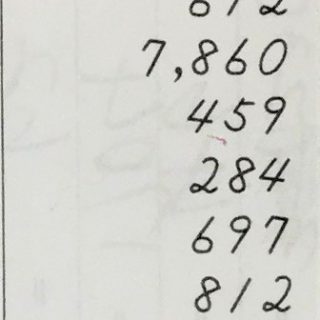 7,860
459
284
697
812